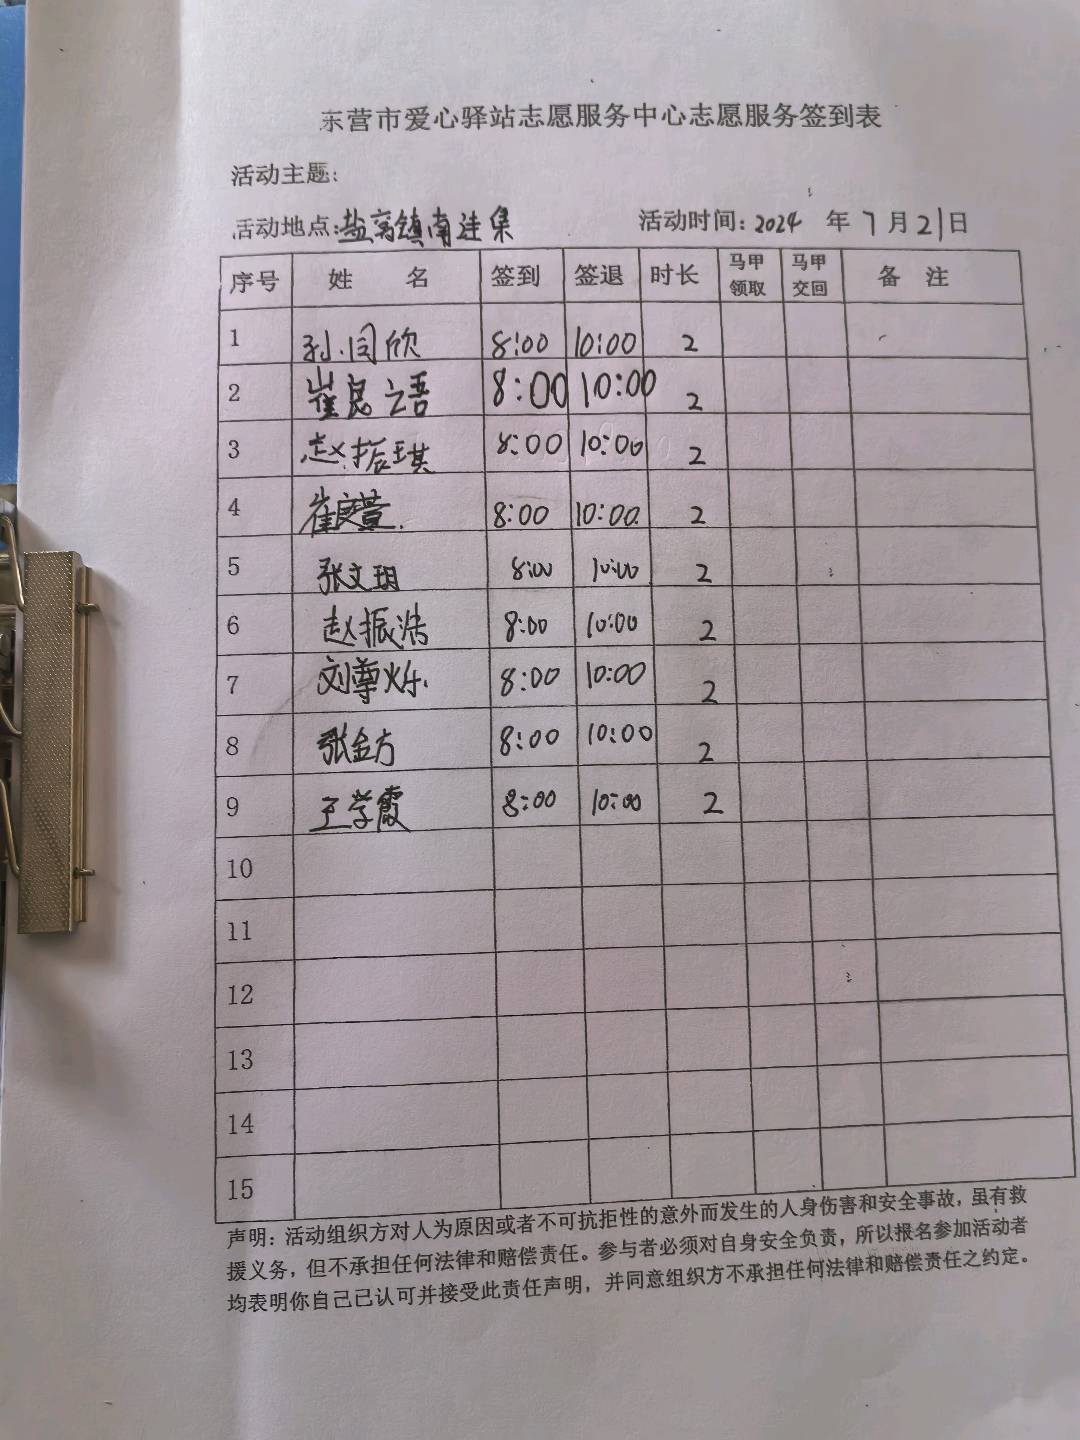 东营市爱心驿站志愿服务中心志愿服务签到表
活动主题:
活动地点:盐窝镇南洼集 活动时间:2024 年 7 月 21 日
序号 姓 名 签到 签退 时长 马甲领取 马甲交回 备 注
1 孙闫欣 8:00 10:00 2
2 崔良之语 8:00 10:00 2
3 赵振琪 8:00 10:00 2
4 崔庭萱 8:00 10:00 2
5 张文玥 8:00 10:00 2
6 赵振浩 8:00 10:00 2
7 刘尊烁 8:00 10:00 2
8 张金方 8:00 10:00 2
9 王学霞 8:00 10:00 2
10
11
12
13
14
15
声明:活动组织方对人为原因或者不可抗拒性的意外而发生的人身伤害和安全事故,虽有救
援义务,但不承担任何法律和赔偿责任。参与者必须对自身安全负责,所以报名参加活动者
均表明你自己已认可并接受此责任声明,并同意组织方不承担任何法律和赔偿责任之约定。